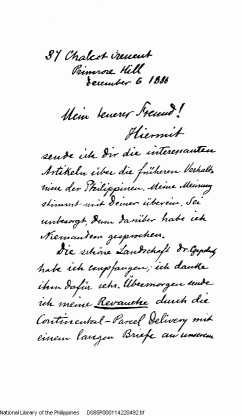 37 Chalcot Crescent
Primrose Hill
December 6 1888
Mein teuerer Freund!
Hiermit
sende ich Dir die interessanten
Artikeln über die früheren Verhält-
nisse der Philippinen. Meine Meinung
stimmt mit Deiner überein. Sei
unbesorgt, denn darüber habe ich
Niemandem gesprochen.
Die schöne Landschaft Dr.
habe ich empfangen; ich danke
ihm dafür sehr. Übermorgen sende
ich meine Revanche durch die
Continental-Parcel Delivery mit
einem langen Briefe an unserem
National Library of the Philippines D08SP000114228492.tif